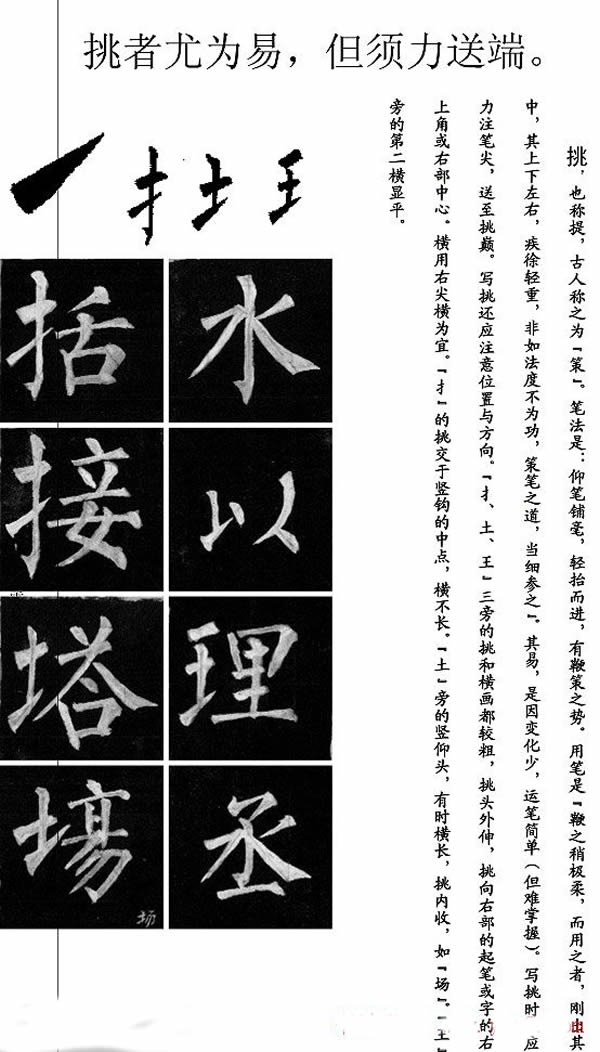 挑者尤为易，但须力送端。
挑，也称提，古人称之为「策」。笔法是：仰笔铺毫，轻抬而进，有鞭策之势。用笔是「鞭之稍极柔，而用之者，刚由其
中，其上下左右，疾徐轻重，非如法度不为功，策笔之道，当细参之」。其易，是因变化少，运笔简单（但难掌握）。写挑时，应
力注笔尖，送至挑巅。写挑还应注意位置与方向。「扌、土、王」三旁的挑和横画都较粗，挑头外伸，挑向右部的起笔或字的右
上角或右部中心。横用右尖横为宜。「扌」的挑交于竖钩的中点，横不长。「土」旁的竖仰头，有时横长，挑内收，如「场」。「王」
旁的第二横显平。
扌土王
括水
接以
塔理
場丞
场